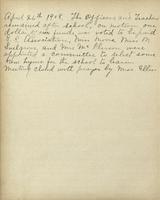 April 26th 1908. The Officers and Teachers
remained after school, on motion one
dollar & six cents was voted to be paid
S. S. Association, Miss Moore Miss M.
and Mrs. Mc Pherson were
appointed a committee to select some
new hymns for the school to learn.
Meeting closed with prayer by Miss Ellis